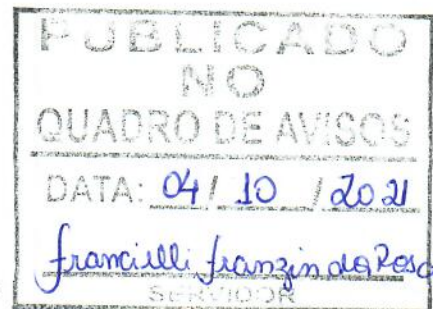 PUBLICADO
NO
QUADRO DE AVISOS
DATA: 04 / 10 / 2021
Francielli Franzin da Rosa
SERVIDOR